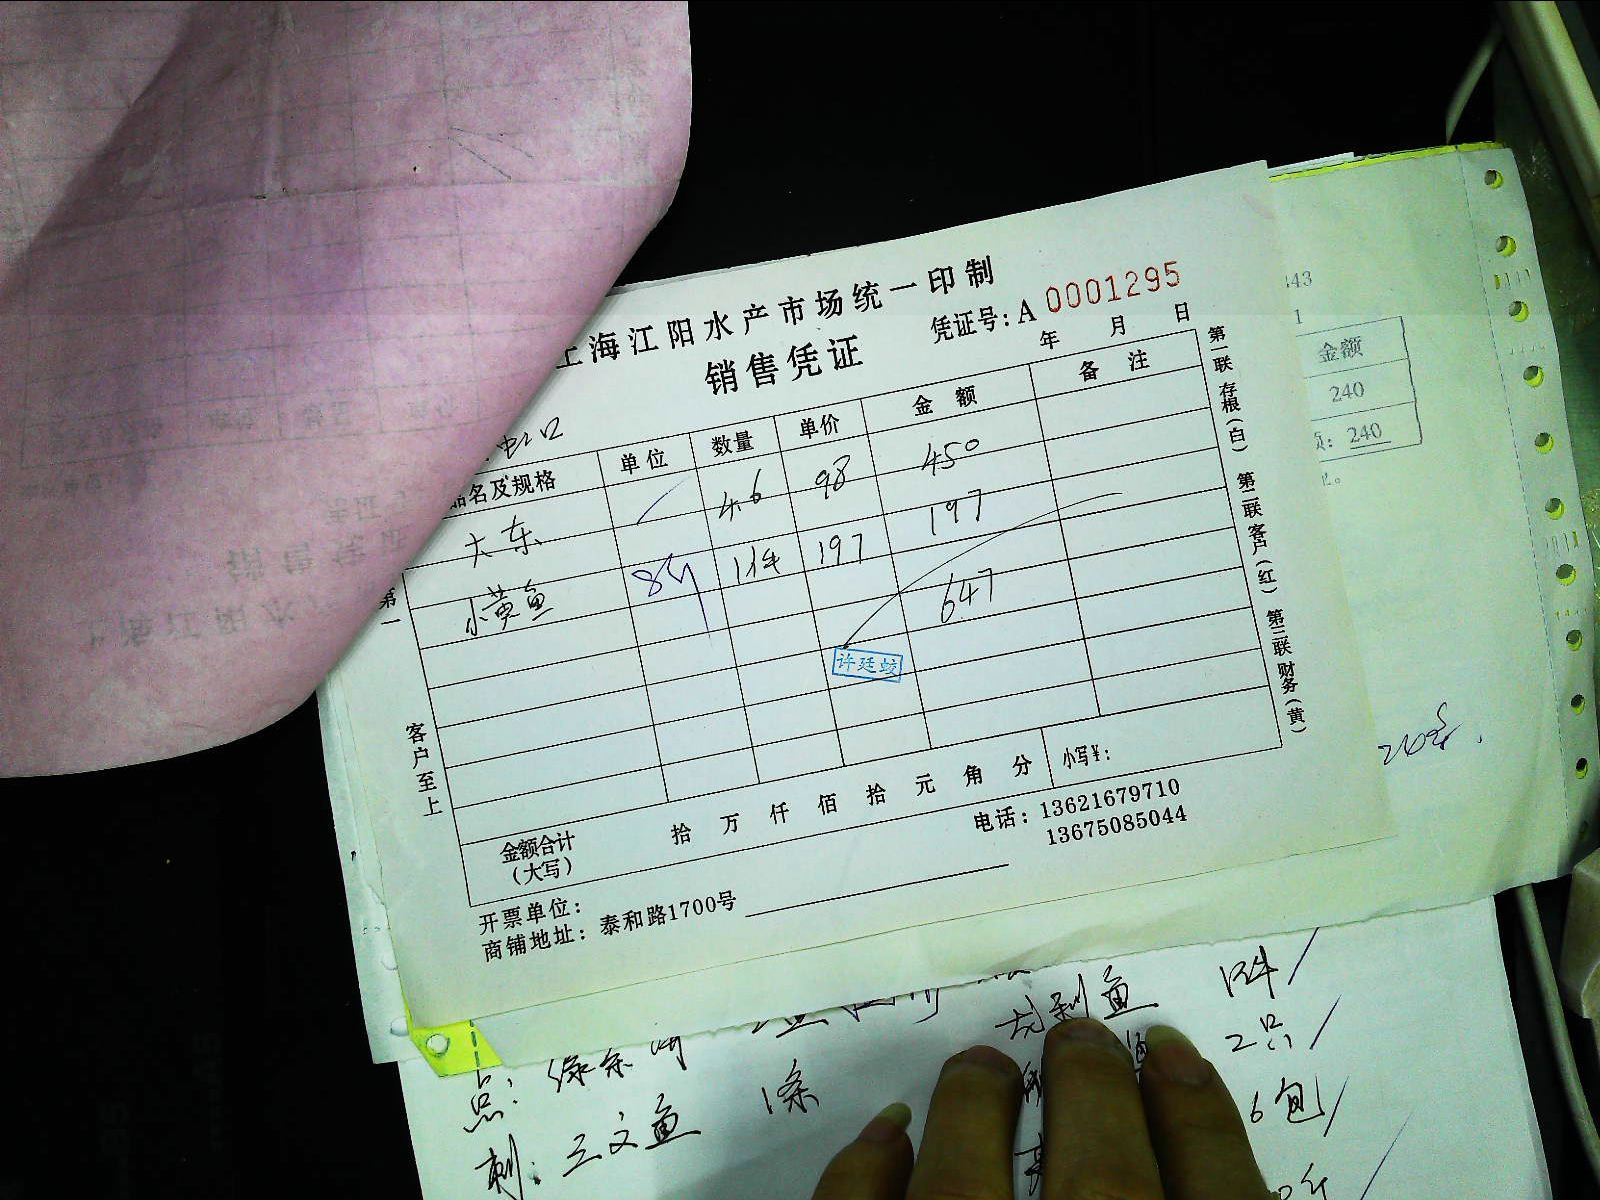 上海江阳水产市场统一印制
销售凭证
凭证号: A 0001295
年 月 日
品名及规格 单位 数量 单价 金额 备注
大东 4.6 98 450
小黄鱼 8斤 1件 197 197
647
许廷蛟
金额合计
(大写)
拾 万 仟 佰 拾 元 角 分 小写¥:
开票单位:
电话: 13621679710
13675085044
商铺地址: 泰和路1700号
客户至上
第一联存根(白) 第二联客户(红) 第三联财务(黄)
443
1
金额
240
240
1件
点:
2只
刺: 三文鱼 1条
6包